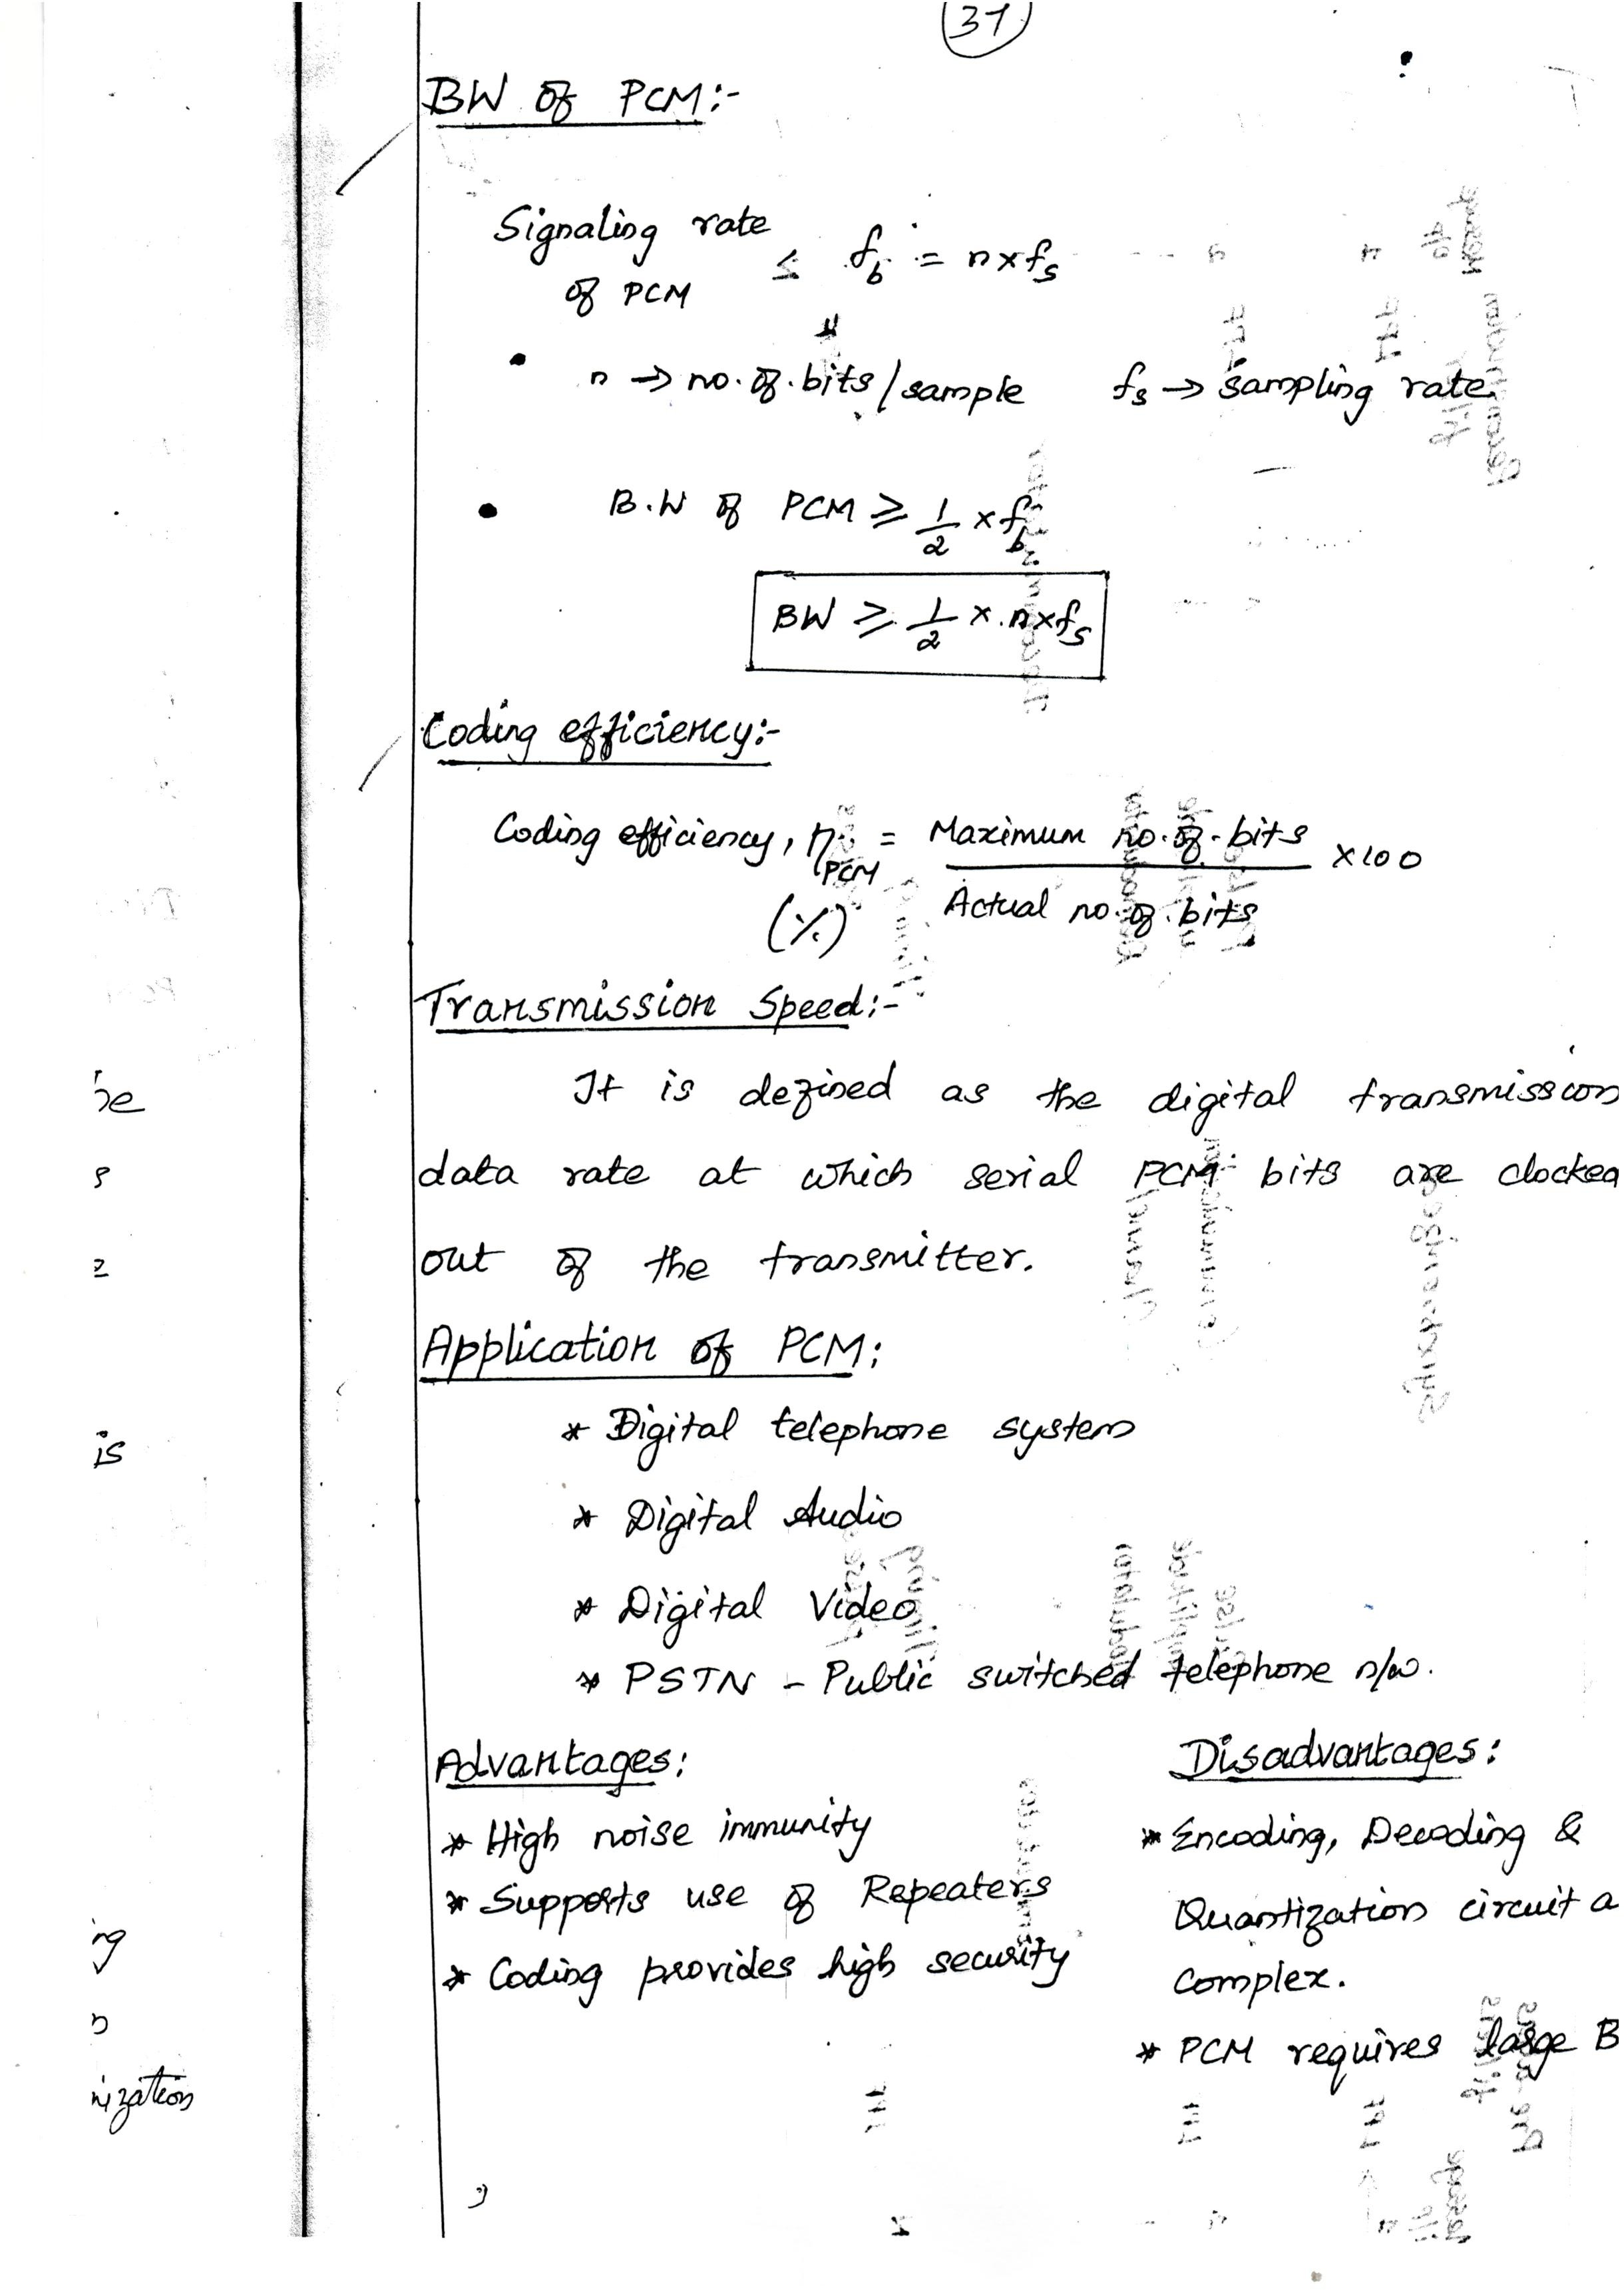 37
BW of PCM:-
Signaling rate
of PCM ≤ fb = n×fs
n → no. of. bits/sample fs → sampling rate
B.W of PCM ≥ 1/2 × fb
BW ≥ 1/2 × n×fs
Coding efficiency:-
Coding efficiency, ηPCM = Maximum no. of. bits ×100
(%) Actual no. of. bits
Transmission Speed:-
It is defined as the digital transmission
data rate at which serial PCM bits are clocked
out of the transmitter.
Application of PCM:
* Digital telephone system
* Digital Audio
* Digital Video
* PSTN - Public switched telephone n/w.
Advantages:
* High noise immunity
* Supports use of Repeaters
* Coding provides high security
Disadvantages:
* Encoding, Decoding &
Quantization circuit a
complex.
* PCM requires large B
is
ng
nization